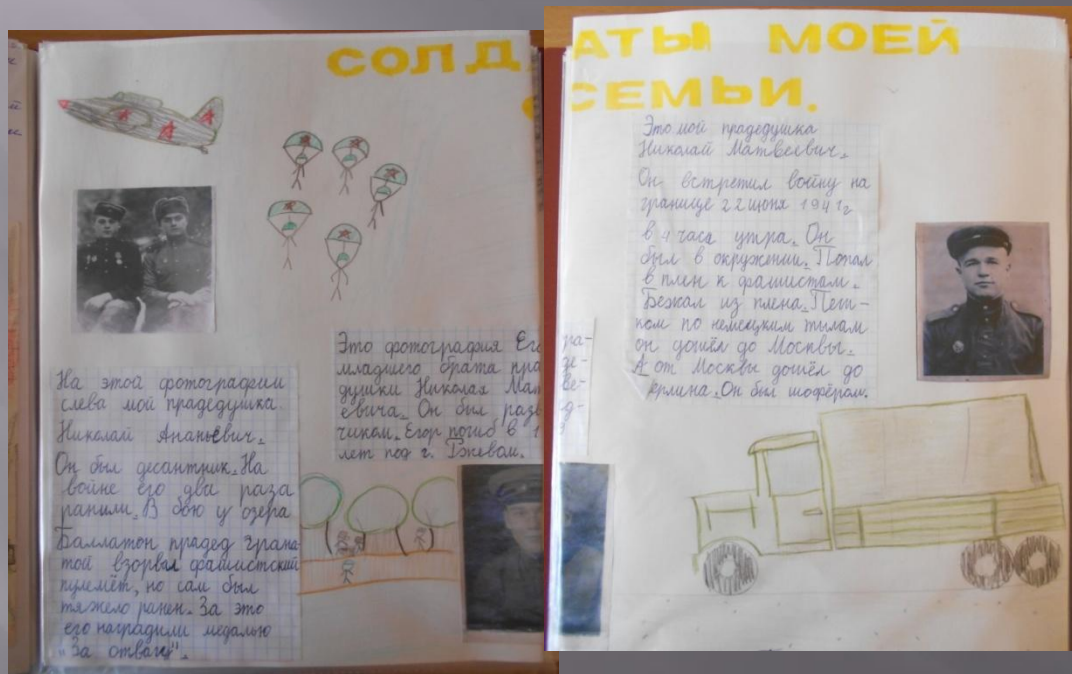 СОЛД
АТЫ МОЕЙ
СЕМЬИ.
На этой фотографии
слева мой прадедушка
Николай Ананьевич.
Он был десантник. На
войне его два раза
ранили. В бою у озера
Баллатон прадед грана-
той взорвал фашистский
пулемёт, но сам был
тяжело ранен. За это
его наградили медалью
"За отвагу".
Это фотография Его
младшего брата пра
душки Николая Мат
евича. Он был разв
чиком. Егор погиб в 1
лет под г. Ржевом.
ра-
де-
ве-
д-
Это мой прадедушка
Николай Матвеевич.
Он встретил войну на
границе 22 июня 1941г
в 4 часа утра. Он
был в окружении. Попал
в плен к фашистам.
Бежал из плена. Пеш-
ком по немецким тылам
он дошёл до Москвы.
А от Москвы дошёл до
ерлина. Он был шофёром.